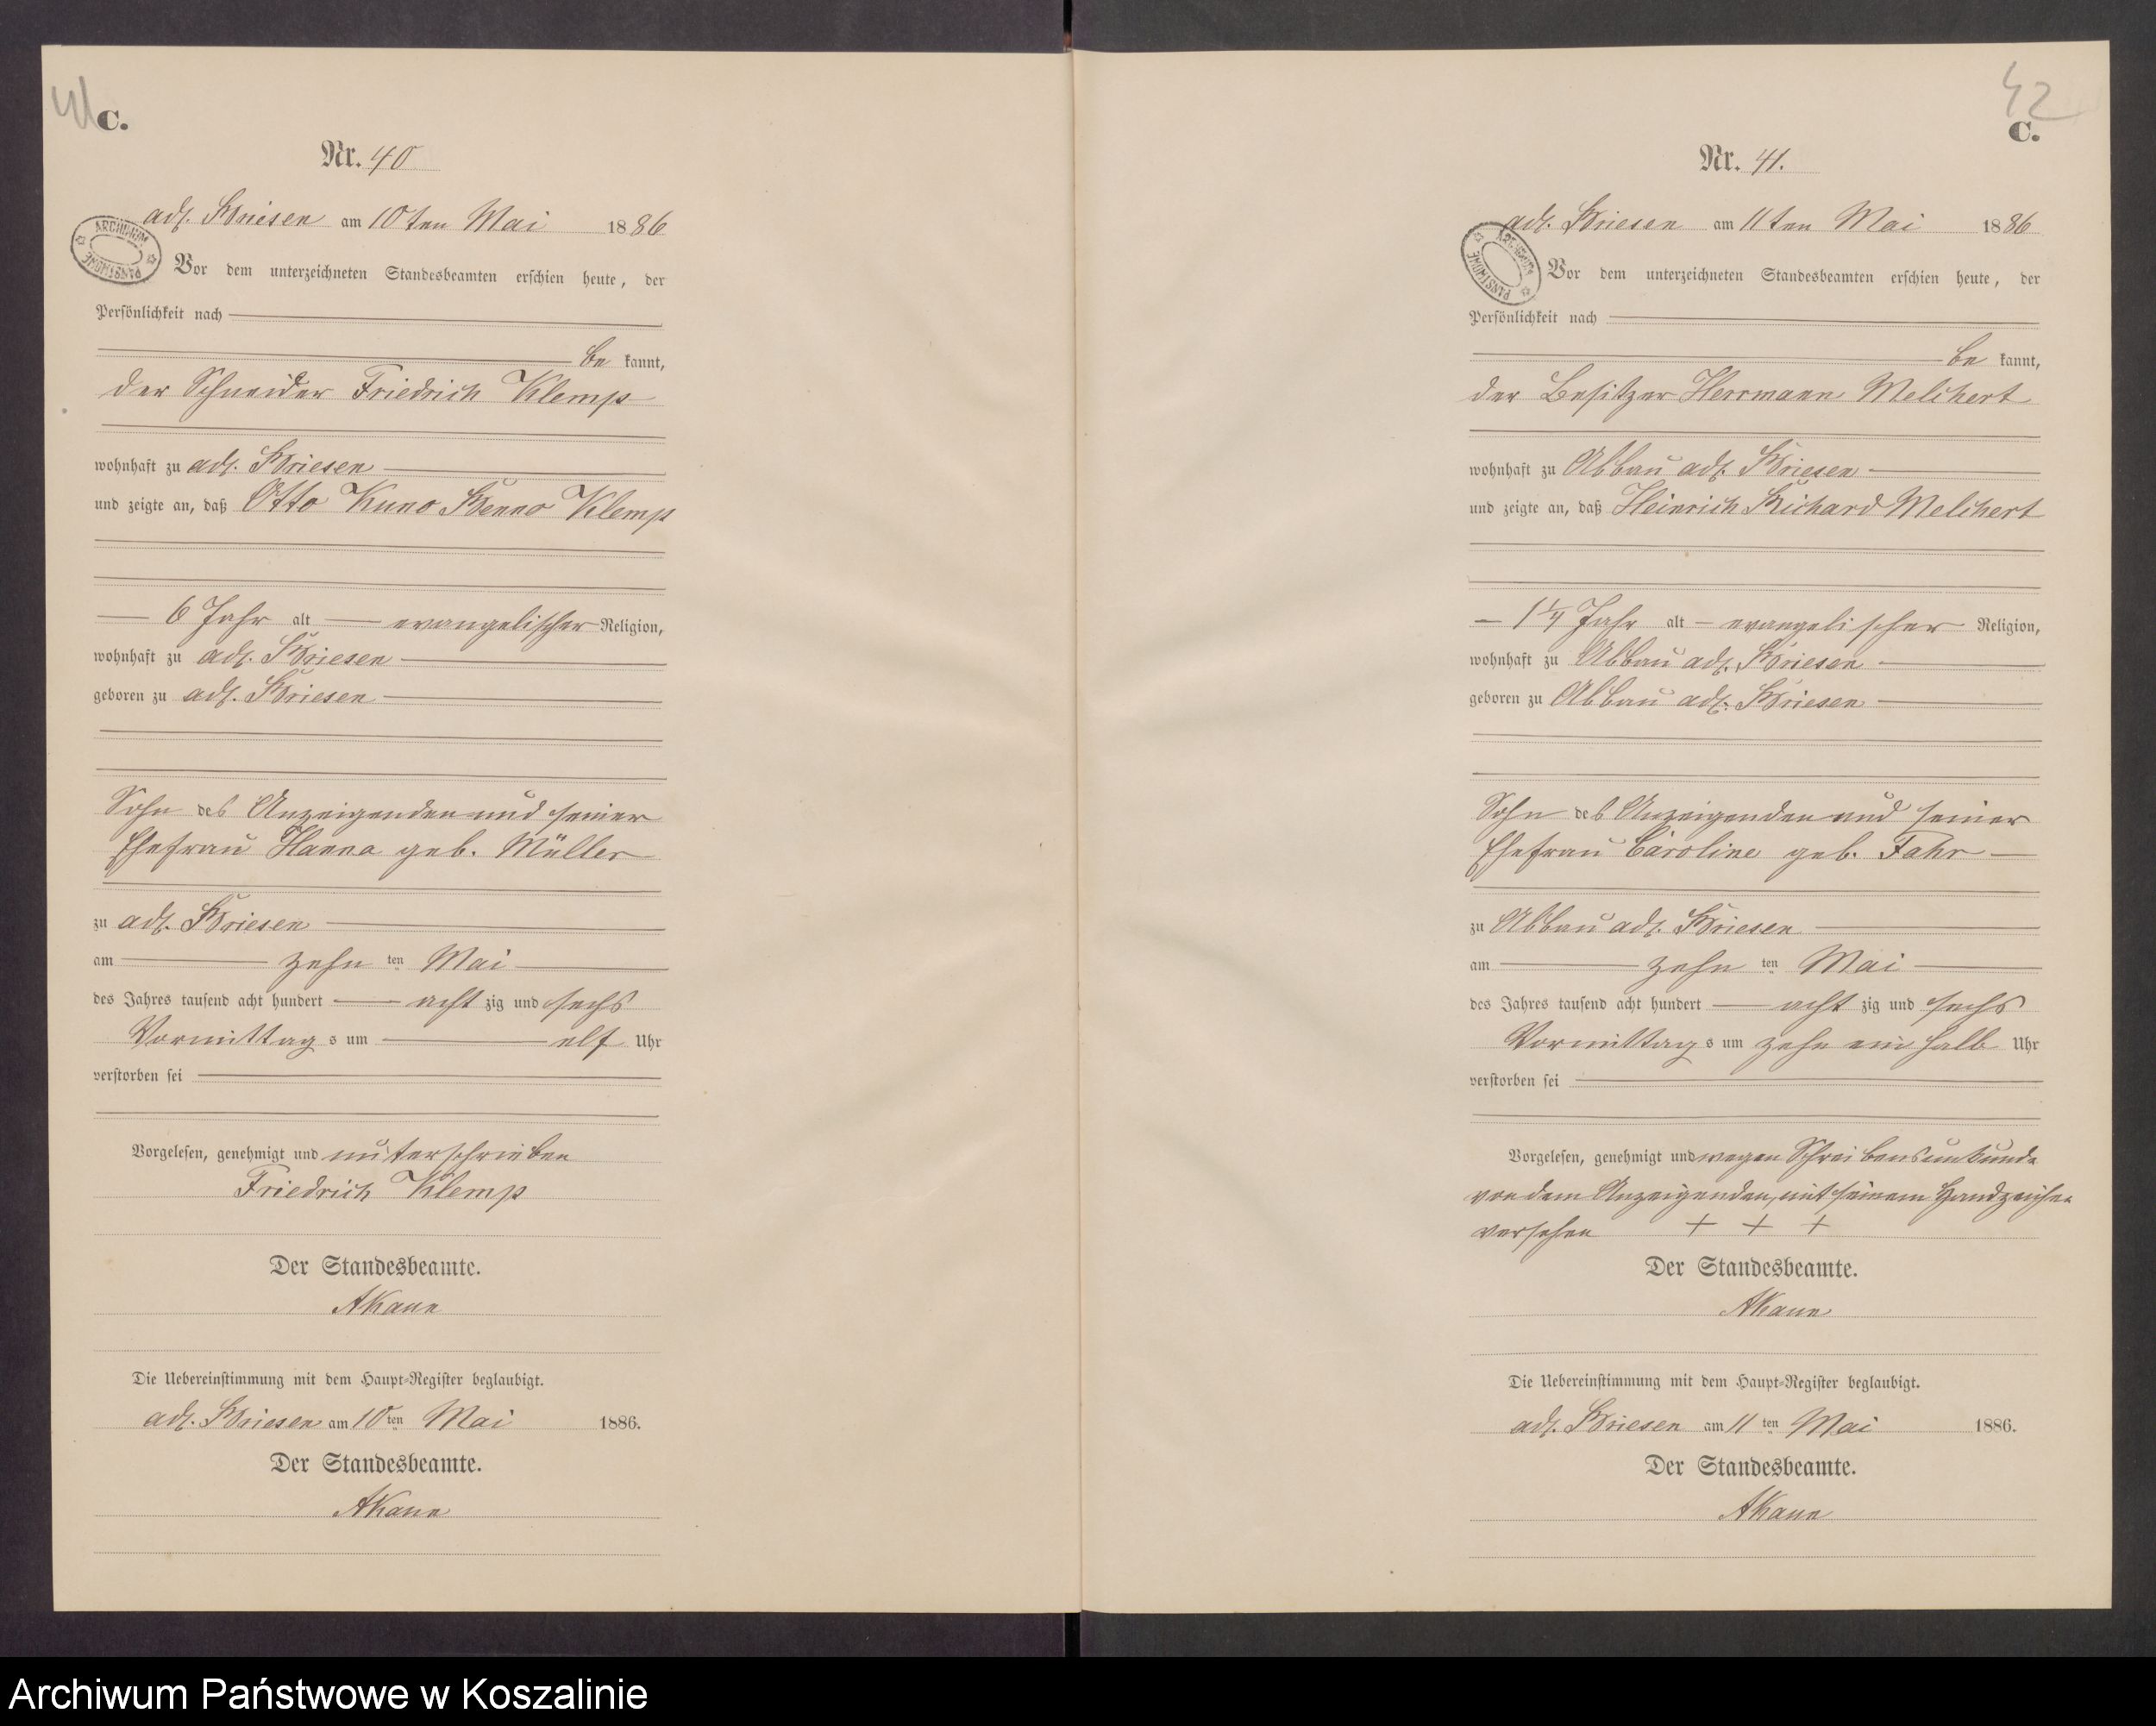 41
C.
Nr. 40
adl. Briesen am 10ten Mai 1886
ARCHIWUM PAŃSTWOWE
Vor dem unterzeichneten Standesbeamten erschien heute, der
Persönlichkeit nach
be kannt,
der Schneider Friedrich Klemp
wohnhaft zu adl. Briesen
und zeigte an, daß Otto Kuno Benno Klemp
6 Jahr alt evangelischer Religion,
wohnhaft zu adl. Briesen
geboren zu adl. Briesen
Sohn des Anzeigenden und seiner
Ehefrau Hanna geb. Müller
zu adl. Briesen
am zehn ten Mai
des Jahres tausend acht hundert acht zig und sechs
Vormittag s um elf Uhr
verstorben sei
Vorgelesen, genehmigt und unterschrieben
Friedrich Klemp
Der Standesbeamte.
Die Uebereinstimmung mit dem Haupt-Register beglaubigt.
adl. Briesen am 10ten Mai 1886.
Der Standesbeamte.
42
C.
Nr. 41.
adl. Briesen am 11ten Mai 1886
ARCHIWUM PAŃSTWOWE
Vor dem unterzeichneten Standesbeamten erschien heute, der
Persönlichkeit nach
be kannt,
der Besitzer Herrmann Melchert
wohnhaft zu Abbau adl. Briesen
und zeigte an, daß Heinrich Richard Melchert
1 1/4 Jahr alt – evangelischer Religion,
wohnhaft zu Abbau adl. Briesen
geboren zu Abbau adl. Briesen
Sohn des Anzeigenden und seiner
Ehefrau Caroline geb. Fahr
zu Abbau adl. Briesen
am zehn ten Mai
des Jahres tausend acht hundert acht zig und sechs
Vormittag s um zehn ein halb Uhr
verstorben sei
Vorgelesen, genehmigt und wegen Schreibensunkunde
von dem Anzeigenden, mit seinem Handzeichen
versehen + + +
Der Standesbeamte.
Die Uebereinstimmung mit dem Haupt-Register beglaubigt.
adl. Briesen am 11 ten Mai 1886.
Der Standesbeamte.
Archiwum Państwowe w Koszalinie